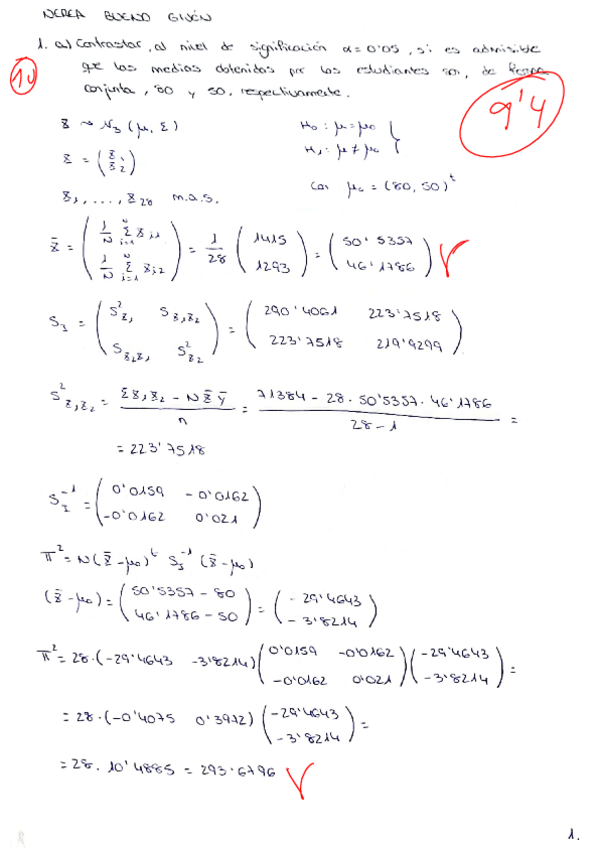 NEREA BUENO GIJÓN
1. a) Contrastar, al nivel de significación α = 0'05, si es admisible
que las medias obtenidas por los estudiantes son, de forma
conjunta, 80 y 50, respectivamente.
10
9'4
X ~ N₂ (μ, Σ)
H₀ : μ = μ₀
H₁ : μ ≠ μ₀
X = (X₁ X₂)
Con μ₀ = (80, 50)ᵗ
X₁, ..., X₂₈ m.a.s.
X̄ = (1/N Σ Xᵢ₁ ; 1/N Σ Xᵢ₂) = 1/28 (1415 ; 1293) = (50'5357 ; 46'1786)
S = (S²X₁ SX₁X₂ ; SX₂X₁ S²X₂) = (290'4061 223'7518 ; 223'7518 219'9299)
S²X₁X₂ = (ΣX₁X₂ - N X̄ Ȳ)/n = (71384 - 28 · 50'5357 · 46'1786)/(28 - 1) =
= 223'7518
S⁻¹ = (0'0159 -0'0162 ; -0'0162 0'021)
T² = N(X̄ - μ₀)ᵗ S⁻¹ (X̄ - μ₀)
(X̄ - μ₀) = (50'5357 - 80 ; 46'1786 - 50) = (-29'4643 ; -3'8214)
T² = 28 · (-29'4643 -3'8214) (0'0159 -0'0162 ; -0'0162 0'021) (-29'4643 ; -3'8214) =
= 28 · (-0'4075 0'3972) (-29'4643 ; -3'8214) =
= 28 · 10'4885 = 293'6796
1.